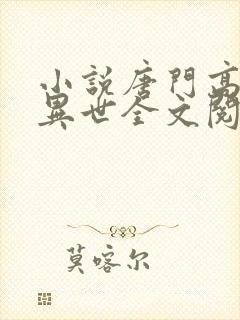 小説唐門高
異世全文閱
莫喀尔